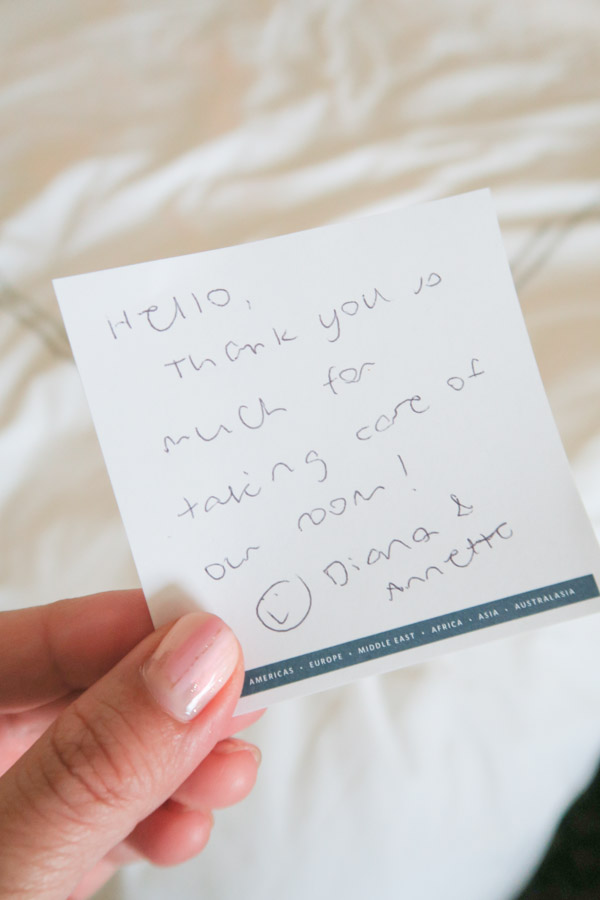 Hello,
Thank you so
much for
taking care of
our room!
Diana &
Annette
AMERICAS • EUROPE • MIDDLE EAST • AFRICA • ASIA • AUSTRALASIA